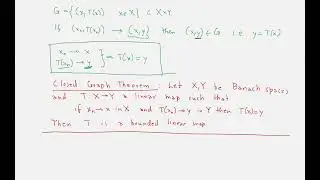 G = {(x, T(x)) x∈X} ⊂ X×Y
If (xₙ, T(xₙ)) → (x,y) then (x,y) ∈ G i.e. y = T(x)
xₙ → x in X
T(xₙ) → y } ⇒ T(x) = y
Closed Graph Theorem: Let X, Y be Banach spaces
and T: X→Y a linear map such that
if xₙ → x in X and T(xₙ) → y in Y then T(x) = y
Then T is a bounded linear map